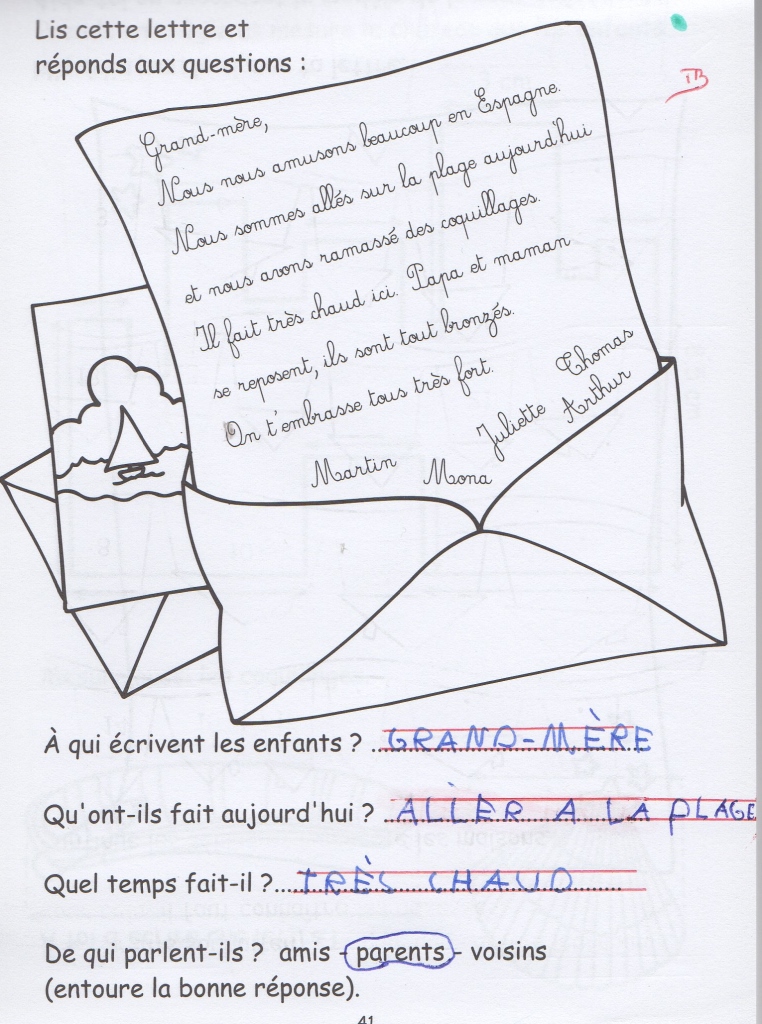 Lis cette lettre et
réponds aux questions :
TB
Grand-mère,
Nous nous amusons beaucoup en Espagne.
Nous sommes allés sur la plage aujourd'hui
et nous avons ramassé des coquillages.
Il fait très chaud ici. Papa et maman
se reposent, ils sont tout bronzés.
On t'embrasse tous très fort.
Thomas
Juliette Arthur
Martin Mona
À qui écrivent les enfants ? GRAND-MÈRE
Qu'ont-ils fait aujourd'hui ? ALLÈR A LA PLAGE
Quel temps fait-il ? TRÈS CHAUD
De qui parlent-ils ? amis - parents - voisins
(entoure la bonne réponse).
41